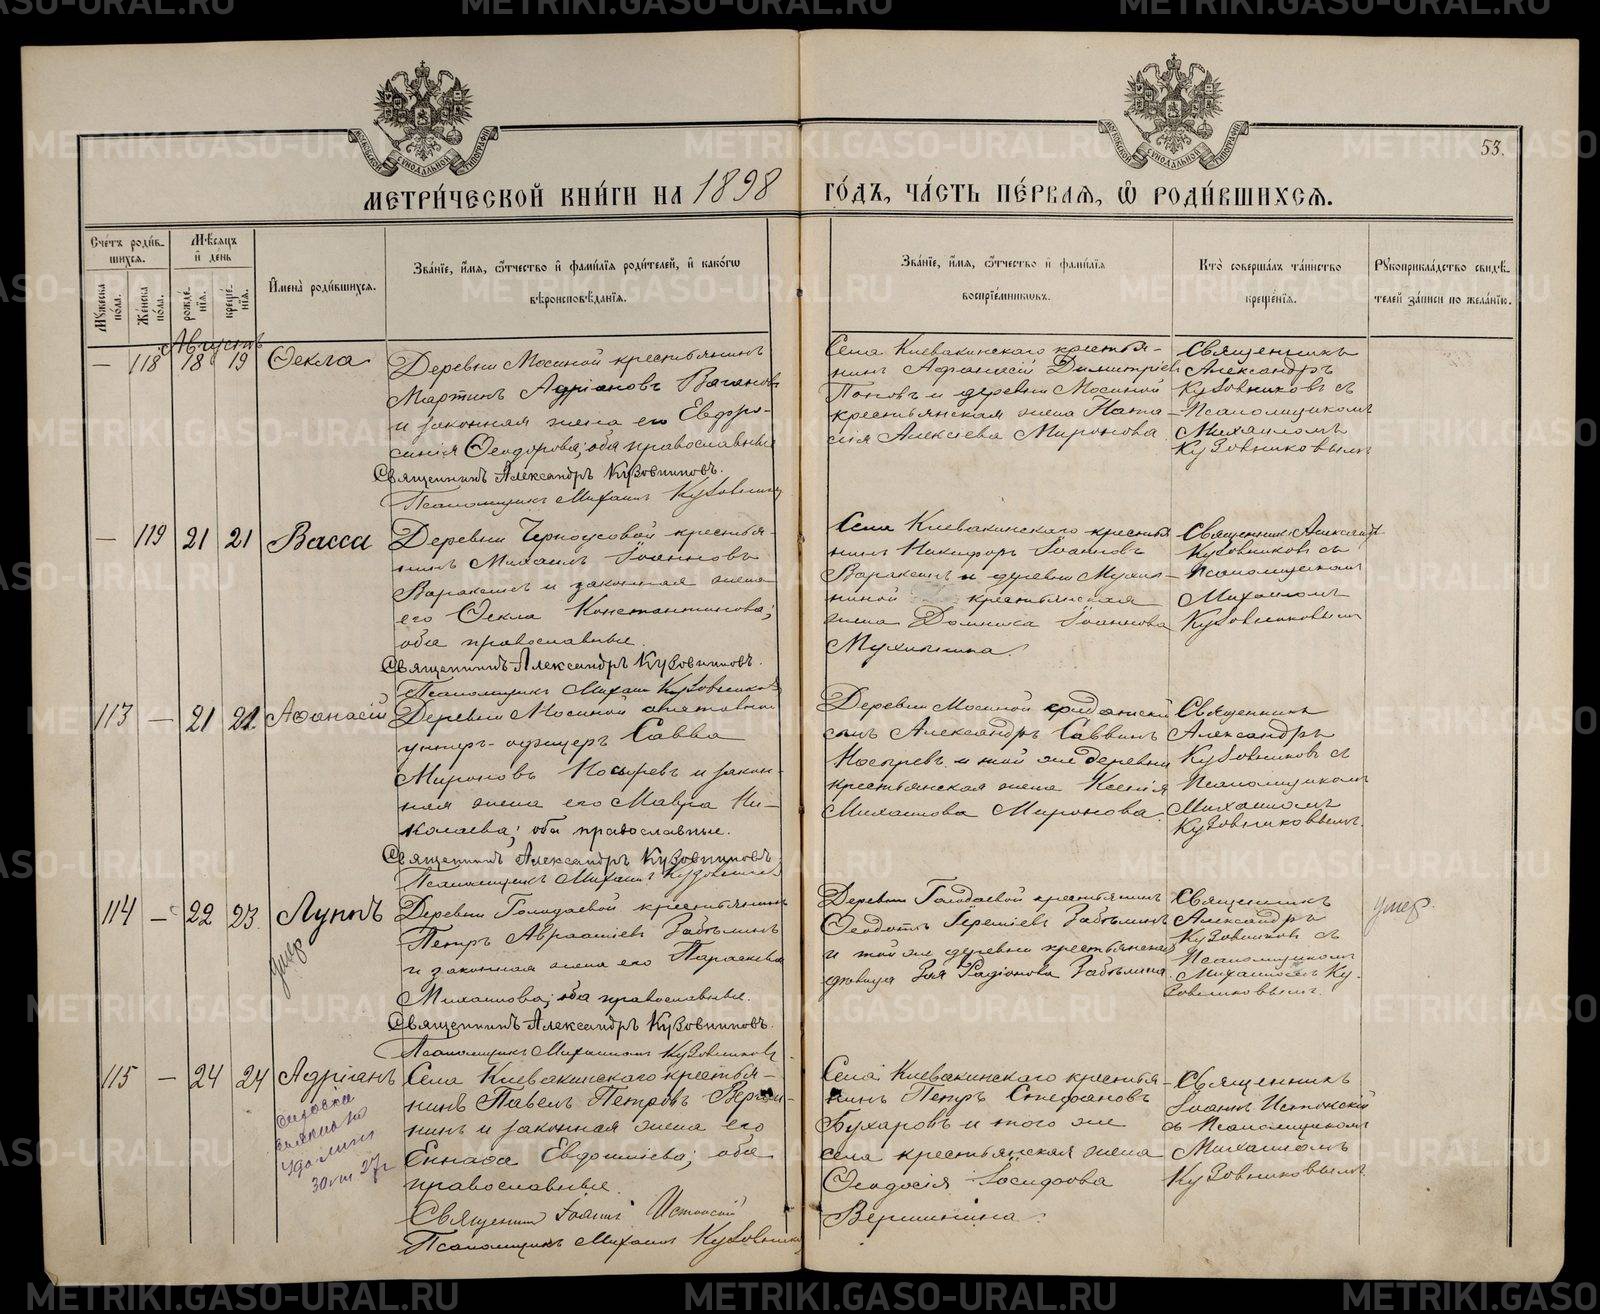 METRIKI.GASO-URAL.RU
53.
МЕТРИЧЕСКОЙ КНИГИ НА 1898 ГОДЪ, ЧАСТЬ ПЕРВАЯ, Ѿ РОДИВШИХСЯ.
Счетъ родившихся.
Мужеска пола.
Женска пола.
Мѣсяцъ и день
рожденія.
крещенія.
Имена родившихся.
Званіе, имя, отчество и фамилія родителей, и какого
вѣроисповѣданія.
Званіе, имя, отчество и фамилія
воспріемниковъ.
Кто совершалъ таинство
крещенія.
Рукоприкладство свидѣ-
телей записи по желанію.
Августъ
— 118 18 19 Ѳекла
Деревни Мосиной крестьянинъ
Мартинъ Адріановъ Вагановъ
и законная жена его Евфро-
синія Ѳеодорова; оба православные
Священникъ Александръ Кузовниковъ.
Псаломщикъ Михаилъ Кузовниковъ
Села Клевакинскаго крестья-
нинъ Афанасій Димитріевъ
Поповъ и деревни Мосиной
крестьянская жена Ната-
лія Алексіева Миронова
Священникъ
Александръ
Кузовниковъ съ
Псаломщикомъ
Михаиломъ
Кузовниковымъ
— 119 21 21 Васса
Деревни Черноусовой крестья-
нинъ Михаилъ Іоанновъ
Вараксинъ и законная жена
его Ѳекла Константинова;
оба православные.
Священникъ Александръ Кузовниковъ.
Псаломщикъ Михаилъ Кузовниковъ
Села Клевакинскаго крестья
нинъ Никифоръ Іоанновъ
Вараксинъ и деревни Мухлы-
ниной крестьянская
жена Домника Іоаннова
Мухлынина.
Священникъ Александръ
Кузовниковъ съ
Псаломщикомъ
Михаиломъ
Кузовниковымъ
113 — 21 21 Аѳанасій
Деревни Мосиной
унтеръ-офицеръ Савва
Мироновъ Косыревъ и закон-
ная жена его Мавра Ни-
колаева; оба православные.
Священникъ Александръ Кузовниковъ
Псаломщикъ Михаилъ Кузовниковъ
Деревни Мосиной гражданскій
сынъ Александръ Саввинъ
Косыревъ и той же деревни
крестьянская жена Ксенія
Михаилова Миронова
Священникъ
Александръ
Кузовниковъ съ
Псаломщикомъ
Михаиломъ
Кузовниковымъ.
114 — 22 23 Луппъ
умеръ
Деревни крестьянинъ
Петръ Авраамовъ Забѣлинъ
и законная жена его Параскева
Михаилова; оба православные.
Священникъ Александръ Кузовниковъ.
Псаломщикъ Михаилъ Кузовниковъ
Деревни крестьянинъ
Ѳеодотъ Іереміевъ Забѣлинъ
и той же деревни крестьянская
дѣвица Зоя Родіонова Забѣлина
Священникъ
Александръ
Кузовниковъ съ
Псаломщикомъ
Михаиломъ Ку-
зовниковымъ.
умер.
115 — 24 24 Адріанъ
30 27г
Села Клевакинскаго крестья-
нинъ Павелъ Петровъ Верши-
нинъ и законная жена его
Еннаѳа Евдокіева; оба
православные.
Священникъ Іоаннъ Истокскій
Псаломщикъ Михаилъ Кузовниковъ
Села Клевакинскаго крестья-
нинъ Петръ Стефановъ
Бухаровъ и того же
села крестьянская жена
Ѳеодосія Іосифова
Вершинина.
Священникъ
Іоаннъ Истокскій
съ Псаломщикомъ
Михаиломъ
Кузовниковымъ